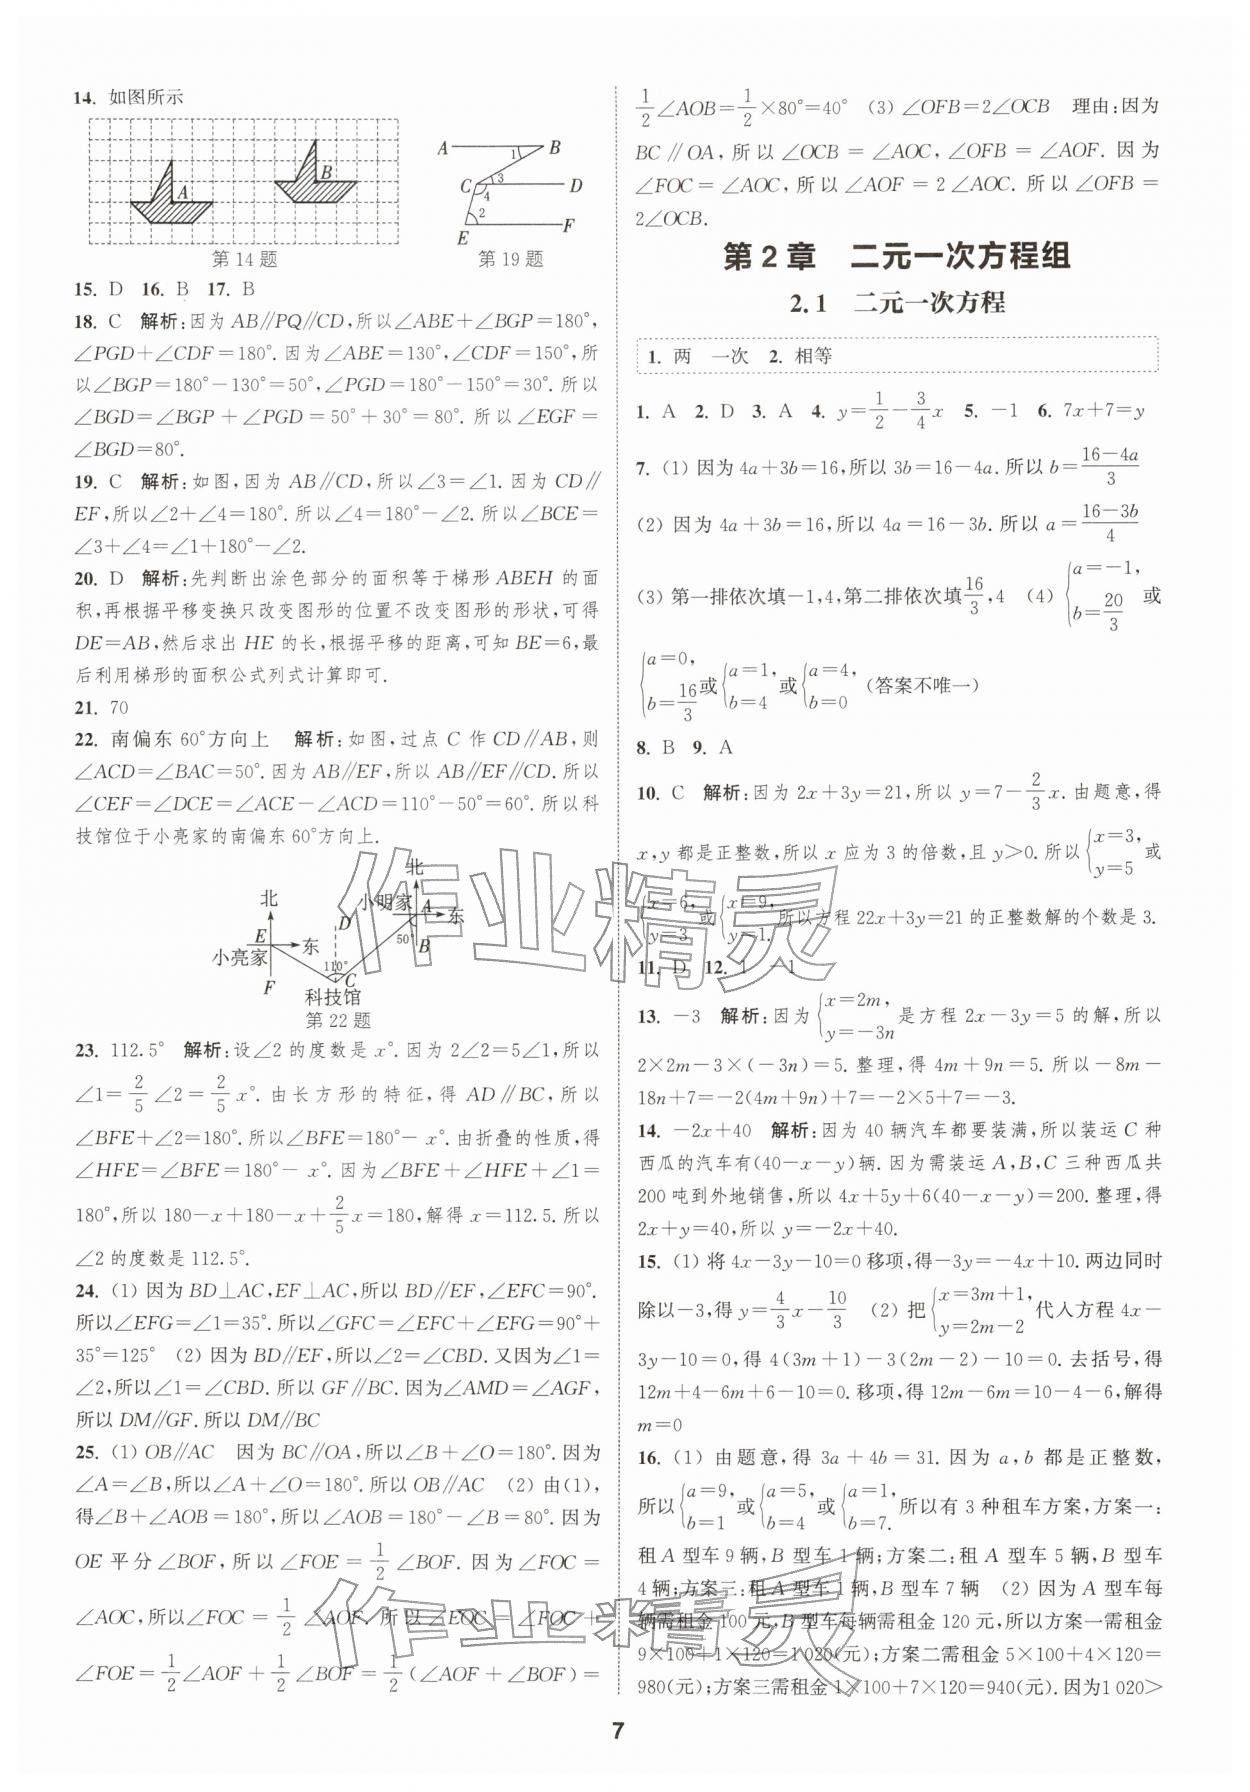 14. 如图所示
A
B
第14题
A
B
1
C
3
D
4
2
E
F
第19题
15. D 16. B 17. B
18. C 解析:因为 AB∥PQ∥CD,所以∠ABE+∠BGP=180°,
∠PGD+∠CDF=180°. 因为∠ABE=130°,∠CDF=150°,所
以∠BGP=180°-130°=50°,∠PGD=180°-150°=30°. 所以
∠BGD=∠BGP+∠PGD=50°+30°=80°. 所以∠EGF=
∠BGD=80°.
19. C 解析:如图,因为 AB∥CD,所以∠3=∠1. 因为 CD∥
EF,所以∠2+∠4=180°. 所以∠4=180°-∠2. 所以∠BCE=
∠3+∠4=∠1+180°-∠2.
20. D 解析:先判断出涂色部分的面积等于梯形 ABEH 的面
积,再根据平移变换只改变图形的位置不改变图形的形状,可得
DE=AB,然后求出 HE 的长,根据平移的距离,可知 BE=6,最
后利用梯形的面积公式列式计算即可.
21. 70
22. 南偏东 60°方向上 解析:如图,过点 C 作 CD∥AB,则
∠ACD=∠BAC=50°. 因为 AB∥EF,所以 AB∥EF∥CD. 所以
∠CEF=∠DCE=∠ACE-∠ACD=110°-50°=60°. 所以科
技馆位于小亮家的南偏东 60°方向上.
北
北
小明家
A
东
D
E
东
50°
B
小亮家
110°
F
C
科技馆
第22题
23. 112.5° 解析:设∠2 的度数是 x°. 因为 2∠2=5∠1,所以
∠1=2/5∠2=2/5x°. 由长方形的特征,得 AD∥BC,所以
∠BFE+∠2=180°. 所以∠BFE=180°-x°. 由折叠的性质,得
∠HFE=∠BFE=180°-x°. 因为∠BFE+∠HFE+∠1=
180°,所以 180-x+180-x+2/5x=180,解得 x=112.5. 所以
∠2 的度数是 112.5°.
24. (1) 因为 BD⊥AC,EF⊥AC,所以 BD∥EF,∠EFC=90°.
所以∠EFG=∠1=35°. 所以∠GFC=∠EFC+∠EFG=90°+
35°=125° (2) 因为 BD∥EF,所以∠2=∠CBD. 又因为∠1=
∠2,所以∠1=∠CBD. 所以 GF∥BC. 因为∠AMD=∠AGF,
所以 DM∥GF. 所以 DM∥BC
25. (1) OB∥AC 因为 BC∥OA,所以∠B+∠O=180°. 因为
∠A=∠B,所以∠A+∠O=180°. 所以 OB∥AC (2) 由(1),
得∠B+∠AOB=180°,所以∠AOB=180°-∠B=80°. 因为
OE 平分∠BOF,所以∠FOE=1/2∠BOF. 因为∠FOC=
∠AOC,所以∠FOC=1/2∠AOF. 所以∠EOC=∠FOC+
∠FOE=1/2∠AOF+1/2∠BOF=1/2(∠AOF+∠BOF)=
1/2∠AOB=1/2×80°=40° (3) ∠OFB=2∠OCB 理由:因为
BC∥OA,所以∠OCB=∠AOC,∠OFB=∠AOF. 因为
∠FOC=∠AOC,所以∠AOF=2∠AOC. 所以∠OFB=
2∠OCB.
第2章 二元一次方程组
2.1 二元一次方程
1. 两 一次 2. 相等
1. A 2. D 3. A 4. y=1/2-3/4x 5. -1 6. 7x+7=y
7. (1) 因为 4a+3b=16,所以 3b=16-4a. 所以 b=(16-4a)/3
(2) 因为 4a+3b=16,所以 4a=16-3b. 所以 a=(16-3b)/4
(3) 第一排依次填-1,4,第二排依次填16/3,4 (4) {a=-1, b=20/3 或
{a=0, b=16/3 或{a=1, b=4 或{a=4, b=0 (答案不唯一)
8. B 9. A
10. C 解析:因为 2x+3y=21,所以 y=7-2/3x. 由题意,得
x,y 都是正整数,所以 x 应为 3 的倍数,且 y>0. 所以{x=3, y=5 或
{x=6, y=3 或{x=9, y=1. 所以方程 22x+3y=21 的正整数解的个数是 3.
11. D 12. 1 -1
13. -3 解析:因为{x=2m, y=-3n 是方程 2x-3y=5 的解,所以
2×2m-3×(-3n)=5. 整理,得 4m+9n=5. 所以-8m-
18n+7=-2(4m+9n)+7=-2×5+7=-3.
14. -2x+40 解析:因为 40 辆汽车都要装满,所以装运 C 种
西瓜的汽车有(40-x-y)辆. 因为需装运 A,B,C 三种西瓜共
200 吨到外地销售,所以 4x+5y+6(40-x-y)=200. 整理,得
2x+y=40,所以 y=-2x+40.
15. (1) 将 4x-3y-10=0 移项,得-3y=-4x+10. 两边同时
除以-3,得 y=4/3x-10/3 (2) 把{x=3m+1, y=2m-2 代入方程 4x-
3y-10=0,得 4(3m+1)-3(2m-2)-10=0. 去括号,得
12m+4-6m+6-10=0. 移项,得 12m-6m=10-4-6,解得
m=0
16. (1) 由题意,得 3a+4b=31. 因为 a,b 都是正整数,
所以{a=9, b=1 或{a=5, b=4 或{a=1, b=7. 所以有 3 种租车方案,方案一:
租 A 型车 9 辆,B 型车 1 辆;方案二:租 A 型车 5 辆,B 型车
4 辆;方案三:租 A 型车 1 辆,B 型车 7 辆 (2) 因为 A 型车每
辆需租金 100 元,B 型车每辆需租金 120 元,所以方案一需租金
9×100+1×120=1 020(元);方案二需租金 5×100+4×120=
980(元);方案三需租金 1×100+7×120=940(元). 因为 1 020>
作业精灵
作业精灵
7